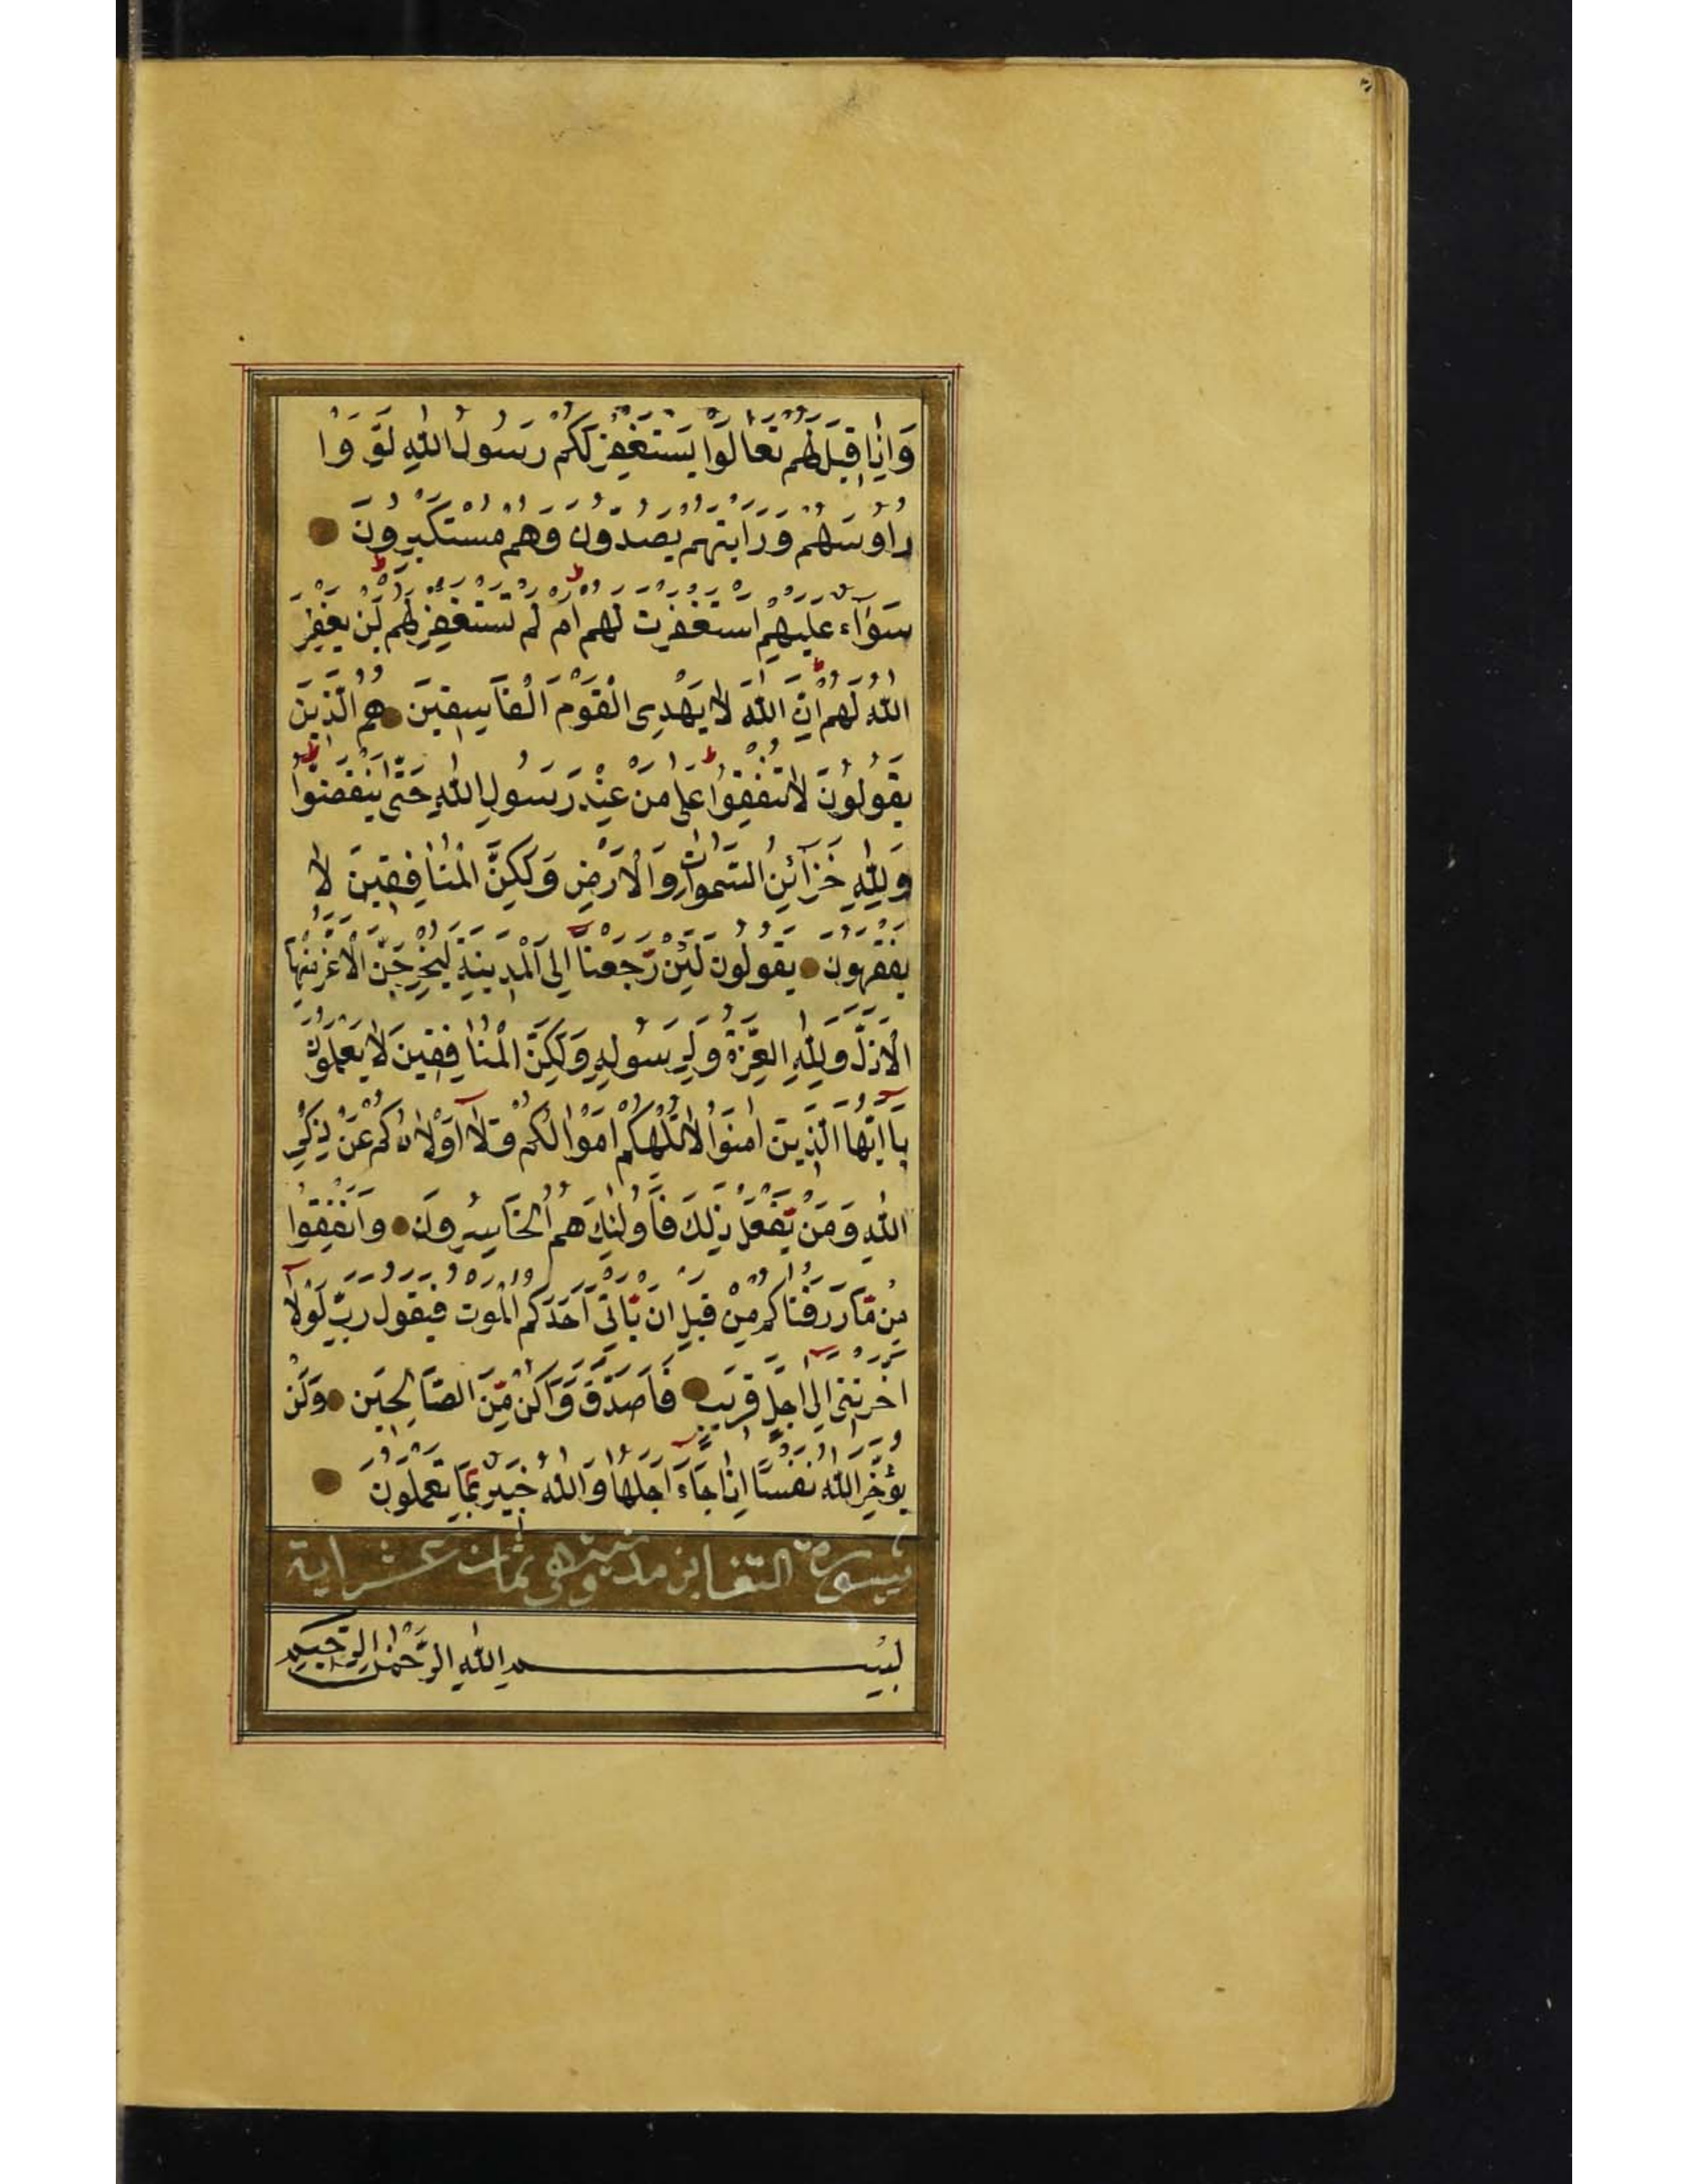 وَاِذَا قِيلَ لَهُمْ تَعَالَوْا يَسْتَغْفِرْ لَكُمْ رَسُولُ اللّٰهِ لَوَّوْا
رَاُوسَهُمْ وَرَاَيْتَهُمْ يَصُدُّونَ وَهُمْ مُسْتَكْبِرُونَ
سَوَآءٌ عَلَيْهِمْ اَسْتَغْفَرْتَ لَهُمْ اَمْ لَمْ تَسْتَغْفِرْ لَهُمْ لَنْ يَغْفِرَ
اللّٰهُ لَهُمْ اِنَّ اللّٰهَ لَا يَهْدِى الْقَوْمَ الْفَاسِقِينَ هُمُ الَّذِينَ
يَقُولُونَ لَا تُنْفِقُوا عَلٰى مَنْ عِنْدَ رَسُولِ اللّٰهِ حَتّٰى يَنْفَضُّوا
وَلِلّٰهِ خَزَآئِنُ السَّمٰوَاتِ وَالْاَرْضِ وَلٰكِنَّ الْمُنَافِقِينَ لَا
يَفْقَهُونَ يَقُولُونَ لَئِنْ رَّجَعْنَا اِلَى الْمَدِينَةِ لَيُخْرِجَنَّ الْاَعَزُّ مِنْهَا
الْاَذَلَّ وَلِلّٰهِ الْعِزَّةُ وَلِرَسُولِهِ وَلٰكِنَّ الْمُنَافِقِينَ لَا يَعْلَمُونَ
يَآ اَيُّهَا الَّذِينَ اٰمَنُوا لَا تُلْهِكُمْ اَمْوَالُكُمْ وَلَآ اَوْلَادُكُمْ عَنْ ذِكْرِ
اللّٰهِ وَمَنْ يَّفْعَلْ ذٰلِكَ فَاُولٰئِكَ هُمُ الْخَاسِرُونَ وَاَنْفِقُوا
مِنْ مَّا رَزَقْنَاكُمْ مِّنْ قَبْلِ اَنْ يَّاْتِىَ اَحَدَكُمُ الْمَوْتُ فَيَقُولَ رَبِّ لَوْلَآ
اَخَّرْتَنِى اِلٰى اَجَلٍ قَرِيبٍ فَاَصَّدَّقَ وَاَكُنْ مِّنَ الصَّالِحِينَ وَلَنْ
يُؤَخِّرَ اللّٰهُ نَفْسًا اِذَا جَآءَ اَجَلُهَا وَاللّٰهُ خَبِيرٌ بِمَا تَعْمَلُونَ
سورة التغابن مدنية وهى ثمان عشر اية
بِسْمِ اللّٰهِ الرَّحْمٰنِ الرَّحِيمِ